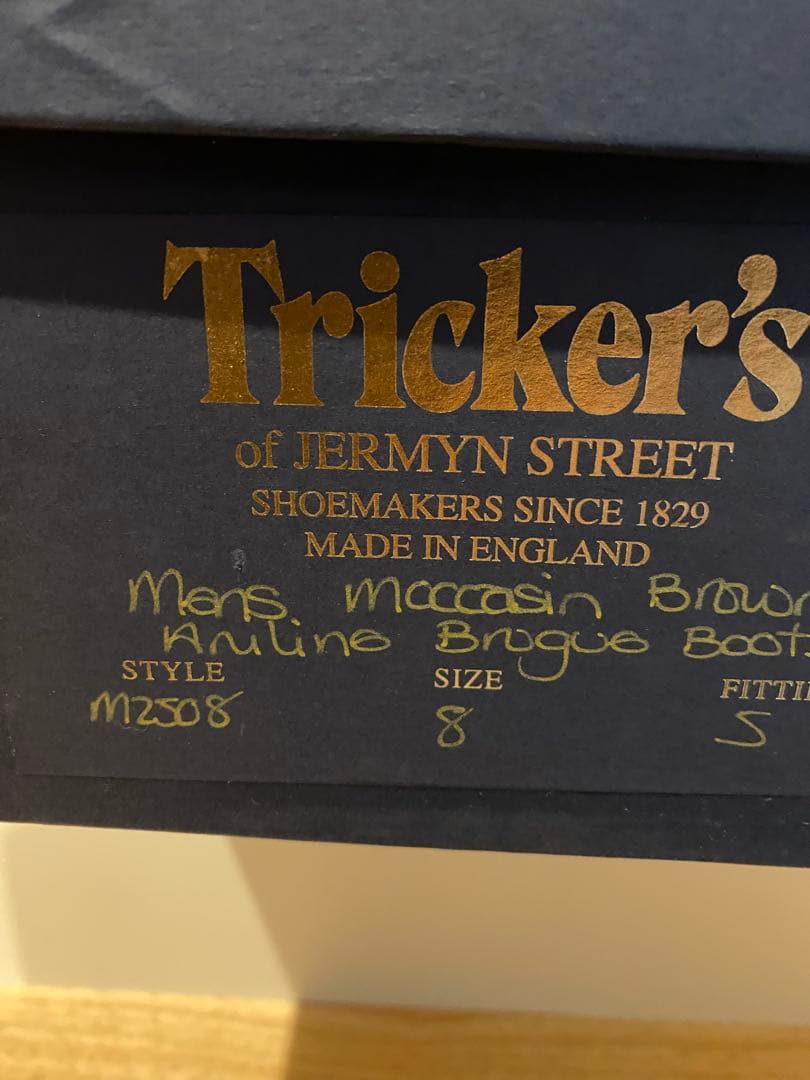 Tricker's
of JERMYN STREET
SHOEMAKERS SINCE 1829
MADE IN ENGLAND
Mens Moccasin Brown
Aniline Brogue Boots
STYLE SIZE FITTI
M2508 8 5